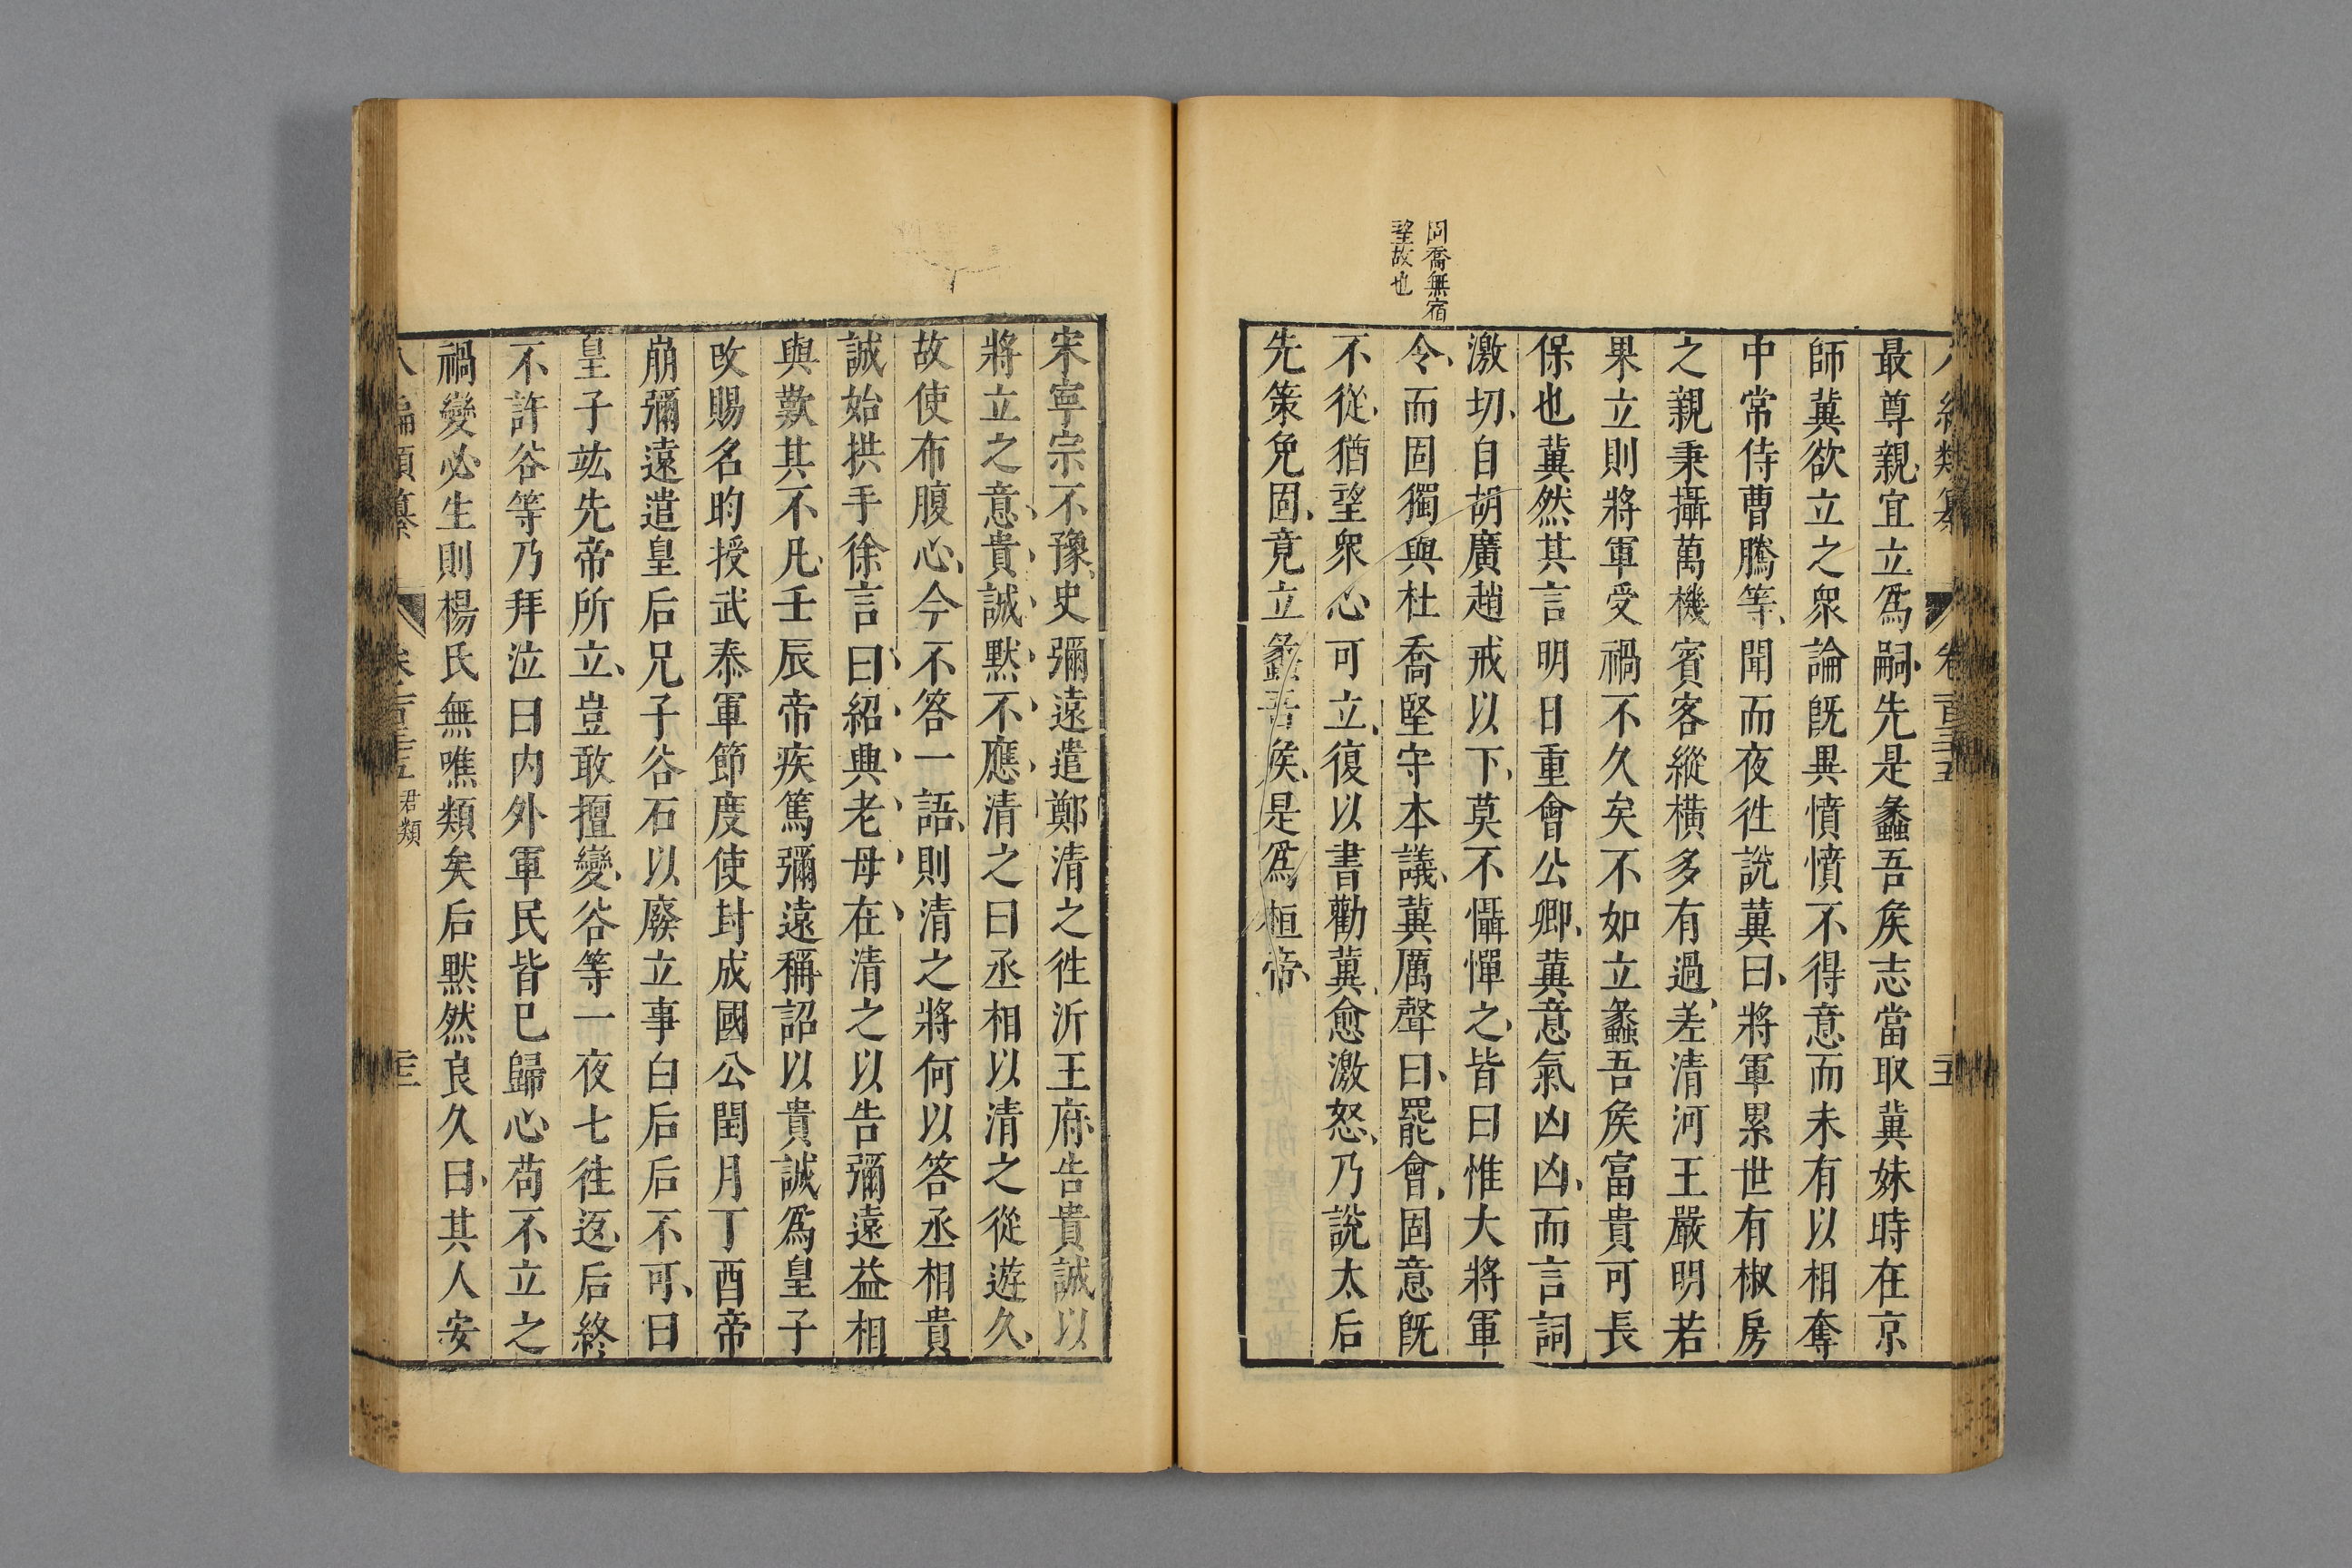 固喬無宿
望故也
最尊親宜立爲嗣先是蠡吾矦志當取兾妹時在京
師兾欲立之衆論旣異憤憤不得意而未有以相奪
中常侍曹騰等聞而夜徃說兾曰將軍累世有椒房
之親秉攝萬機賓客縱橫多有過差清河王嚴明若
果立則將軍受禍不久矣不如立蠡吾矦富貴可長
保也兾然其言明日重會公卿兾意氣凶凶而言詞
激切自胡廣趙戒以下莫不懾憚之皆曰惟大將軍
令而固獨與杜喬堅守本議兾厲聲曰罷會固意旣
不從猶望衆心可立復以書勸兾愈激怒乃說太后
先策免固竟立蠡吾矦是爲桓帝
宋寧宗不豫史彌遠遣鄭清之徃沂王府告貴誠以
將立之意貴誠默不應清之曰丞相以清之從遊久
故使布腹心今不答一語則清之將何以答丞相貴
誠始拱手徐言曰紹典老母在清之以告彌遠益相
與歎其不凡壬辰帝疾篤彌遠稱詔以貴誠爲皇子
改賜名昀授武泰軍節度使封成國公閏月丁酉帝
崩彌遠遣皇后兄子谷石以廢立事白后后不可曰
皇子竑先帝所立豈敢擅變谷等一夜七徃返后終
不許谷等乃拜泣曰内外軍民皆已歸心苟不立之
禍變必生則楊氏無噍類矣后默然良久曰其人安
君類